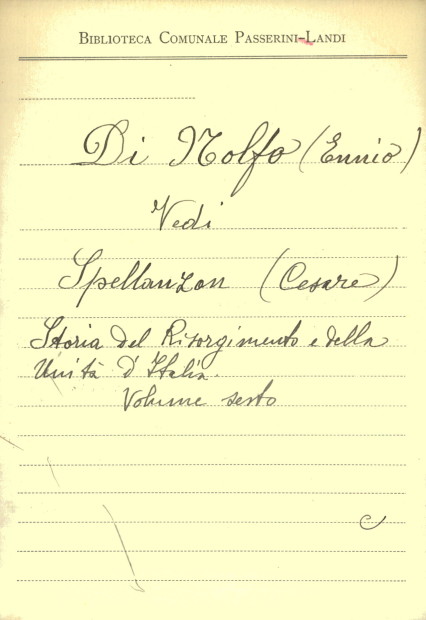 BIBLIOTECA COMUNALE PASSERINI-LANDI
Di Nolfo (Ennio)
Vedi
Spellanzon (Cesare)
Storia del Risorgimento e della
Unità d'Italia.
Volume sesto
C